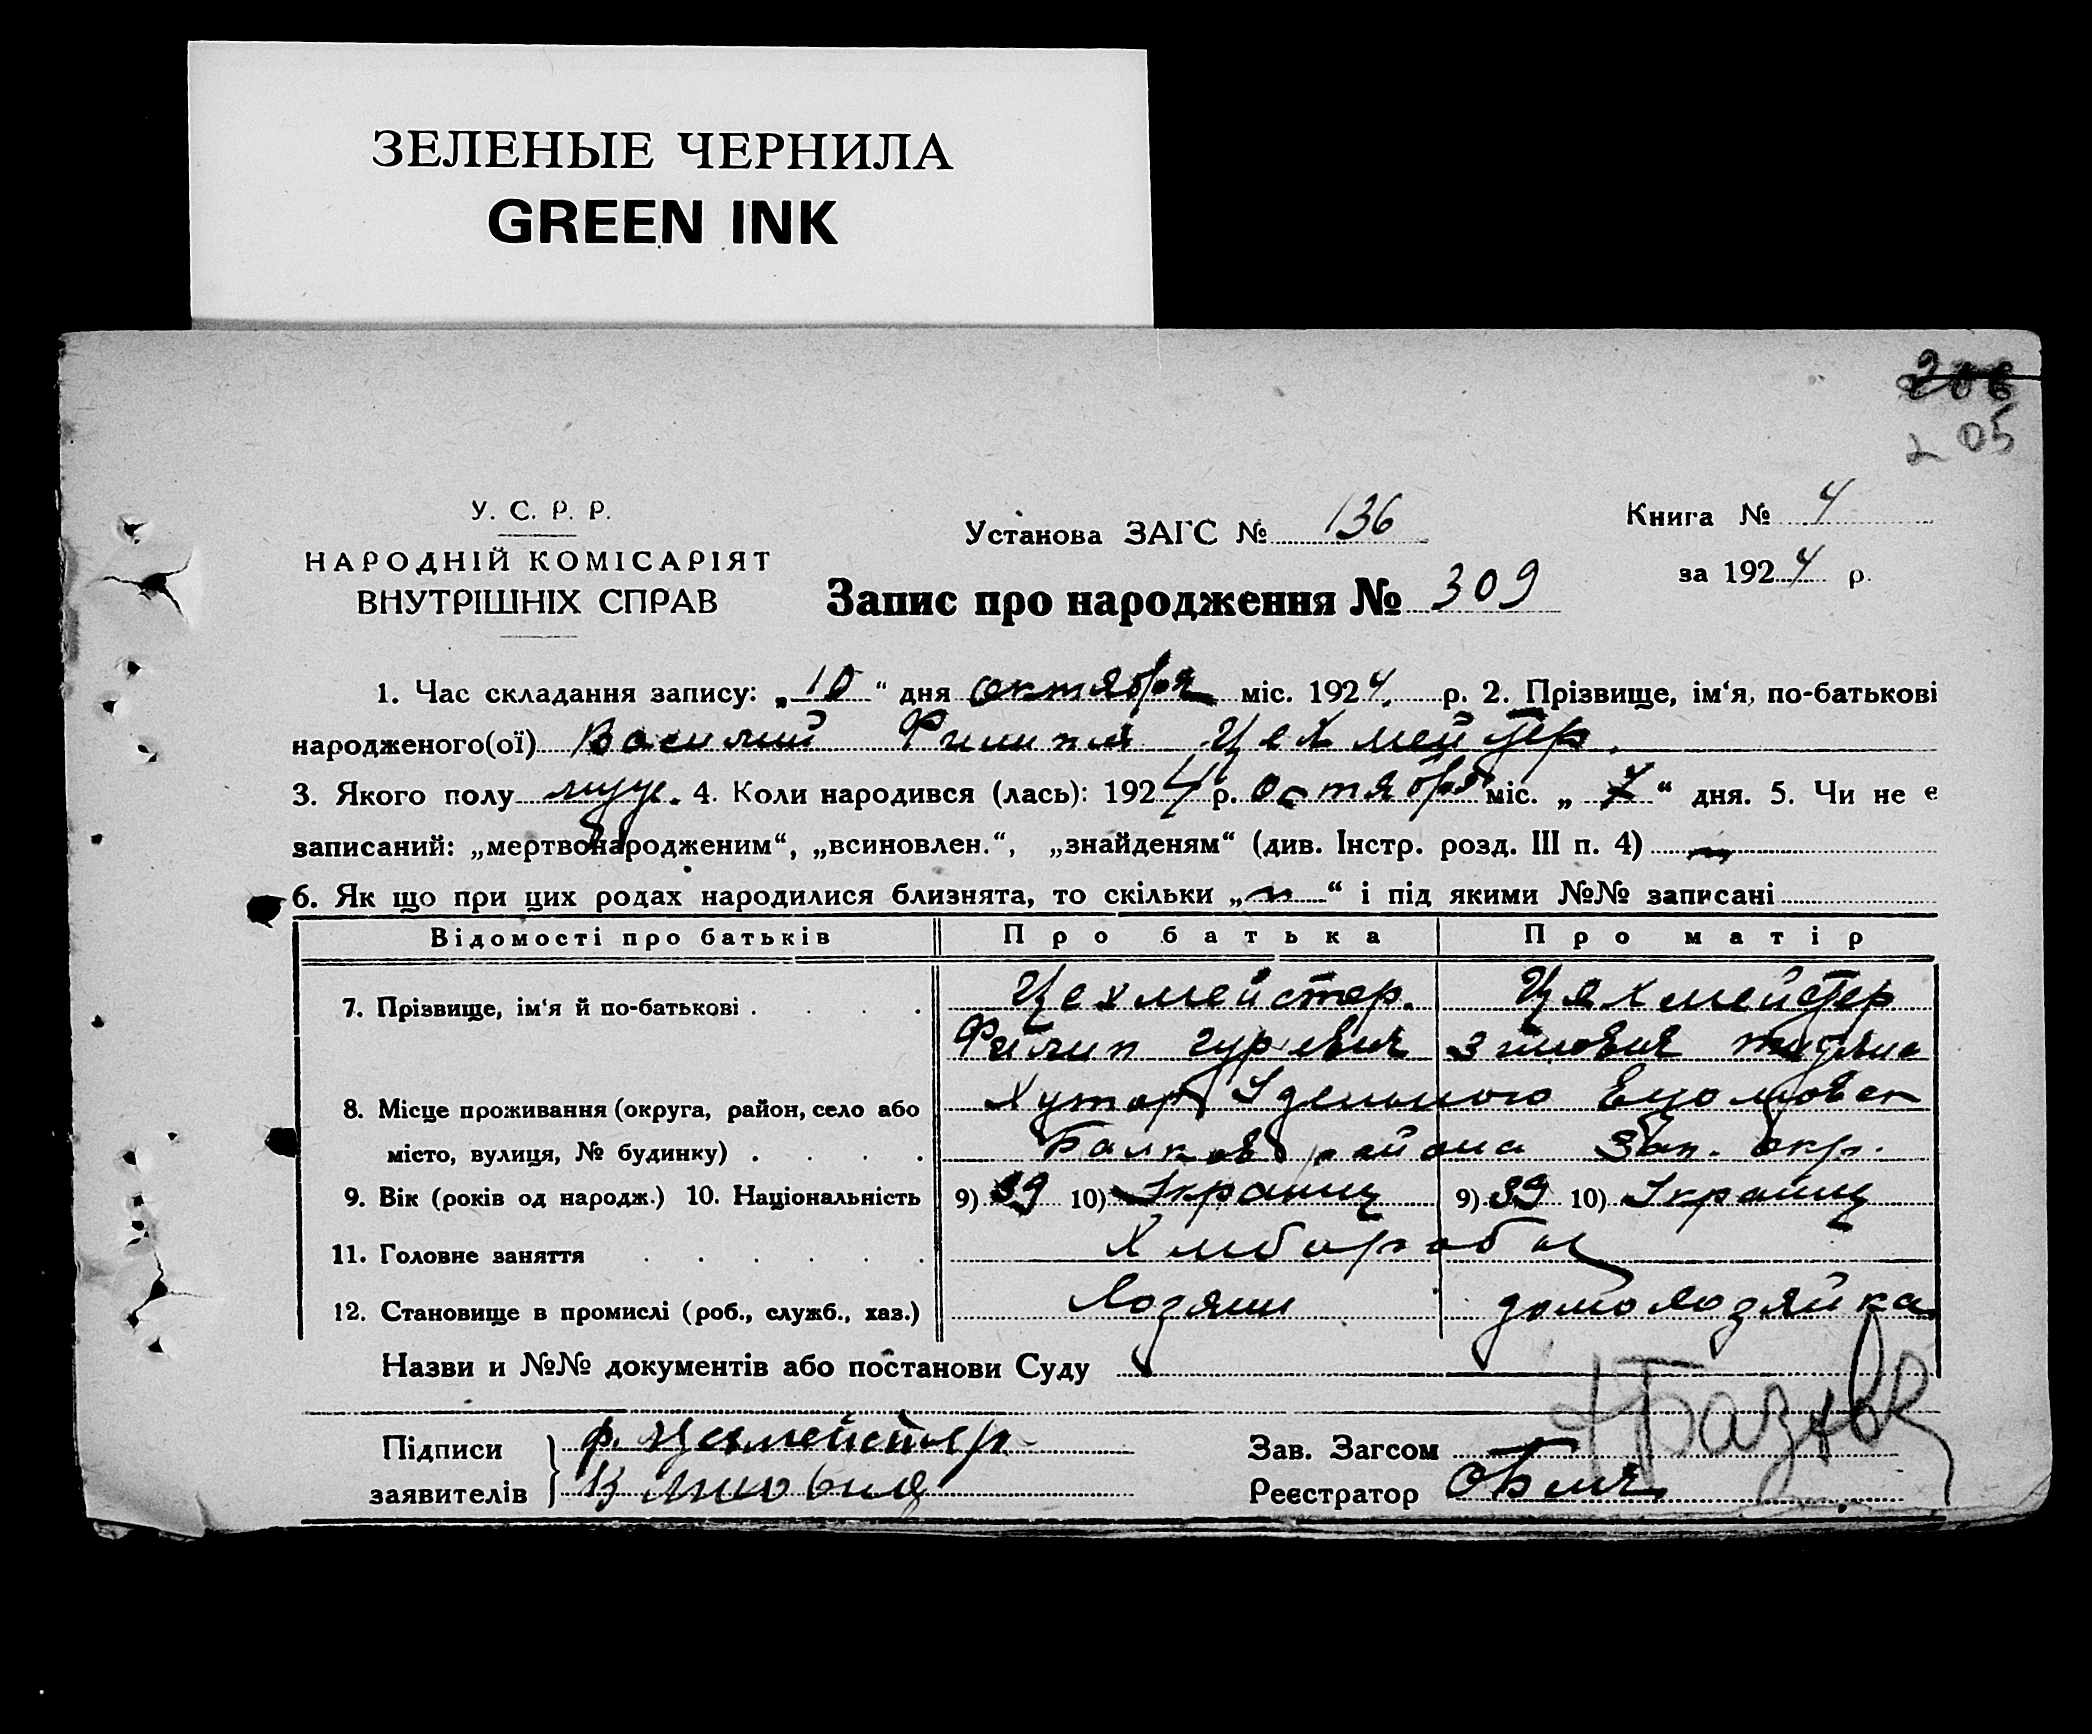 ЗЕЛЕНЫЕ ЧЕРНИЛА
GREEN INK
206
205
У. С. Р. Р.
НАРОДНІЙ КОМІСАРІЯТ
ВНУТРІШНІХ СПРАВ
Установа ЗАГС № 136
Книга № 4
за 1924 р.
Запис про народження № 309
1. Час складання запису: „10“ дня октября міс. 1924 р. 2. Прізвище, ім‘я, по-батькові
народженого(ої) Василий Филипа Цехмейстер.
3. Якого полу муж. 4. Коли народився (лась): 1924 р. октября міс. „7“ дня. 5. Чи не є
записаний: „мертвонародженим“, „всиновлен.“, „знайденям“ (див. Інстр. розд. III п. 4)
6. Як що при цих родах народилися близнята, то скільки „ “ і під якими №№ записані
Відомості про батьків Про батька Про матір
7. Прізвище, ім‘я й по-батькові Цехмейстер. Цехмейстер
Филип Гуревич
8. Місце проживання (округа, район, село або Хутор
місто, вулиця, № будинку) Балков района Зап. окр.
9. Вік (років од народж.) 10. Національність 9) 39 10) Украинц 9) 39 10) Украинц
11. Головне заняття Хлибороба
12. Становище в промислі (роб., служб., хаз.) Хозяин домохозяйка
Назви и №№ документів або постанови Суду
Підписи ф. Цехмейстер
заявителів
Зав. Загсом
Реєстратор